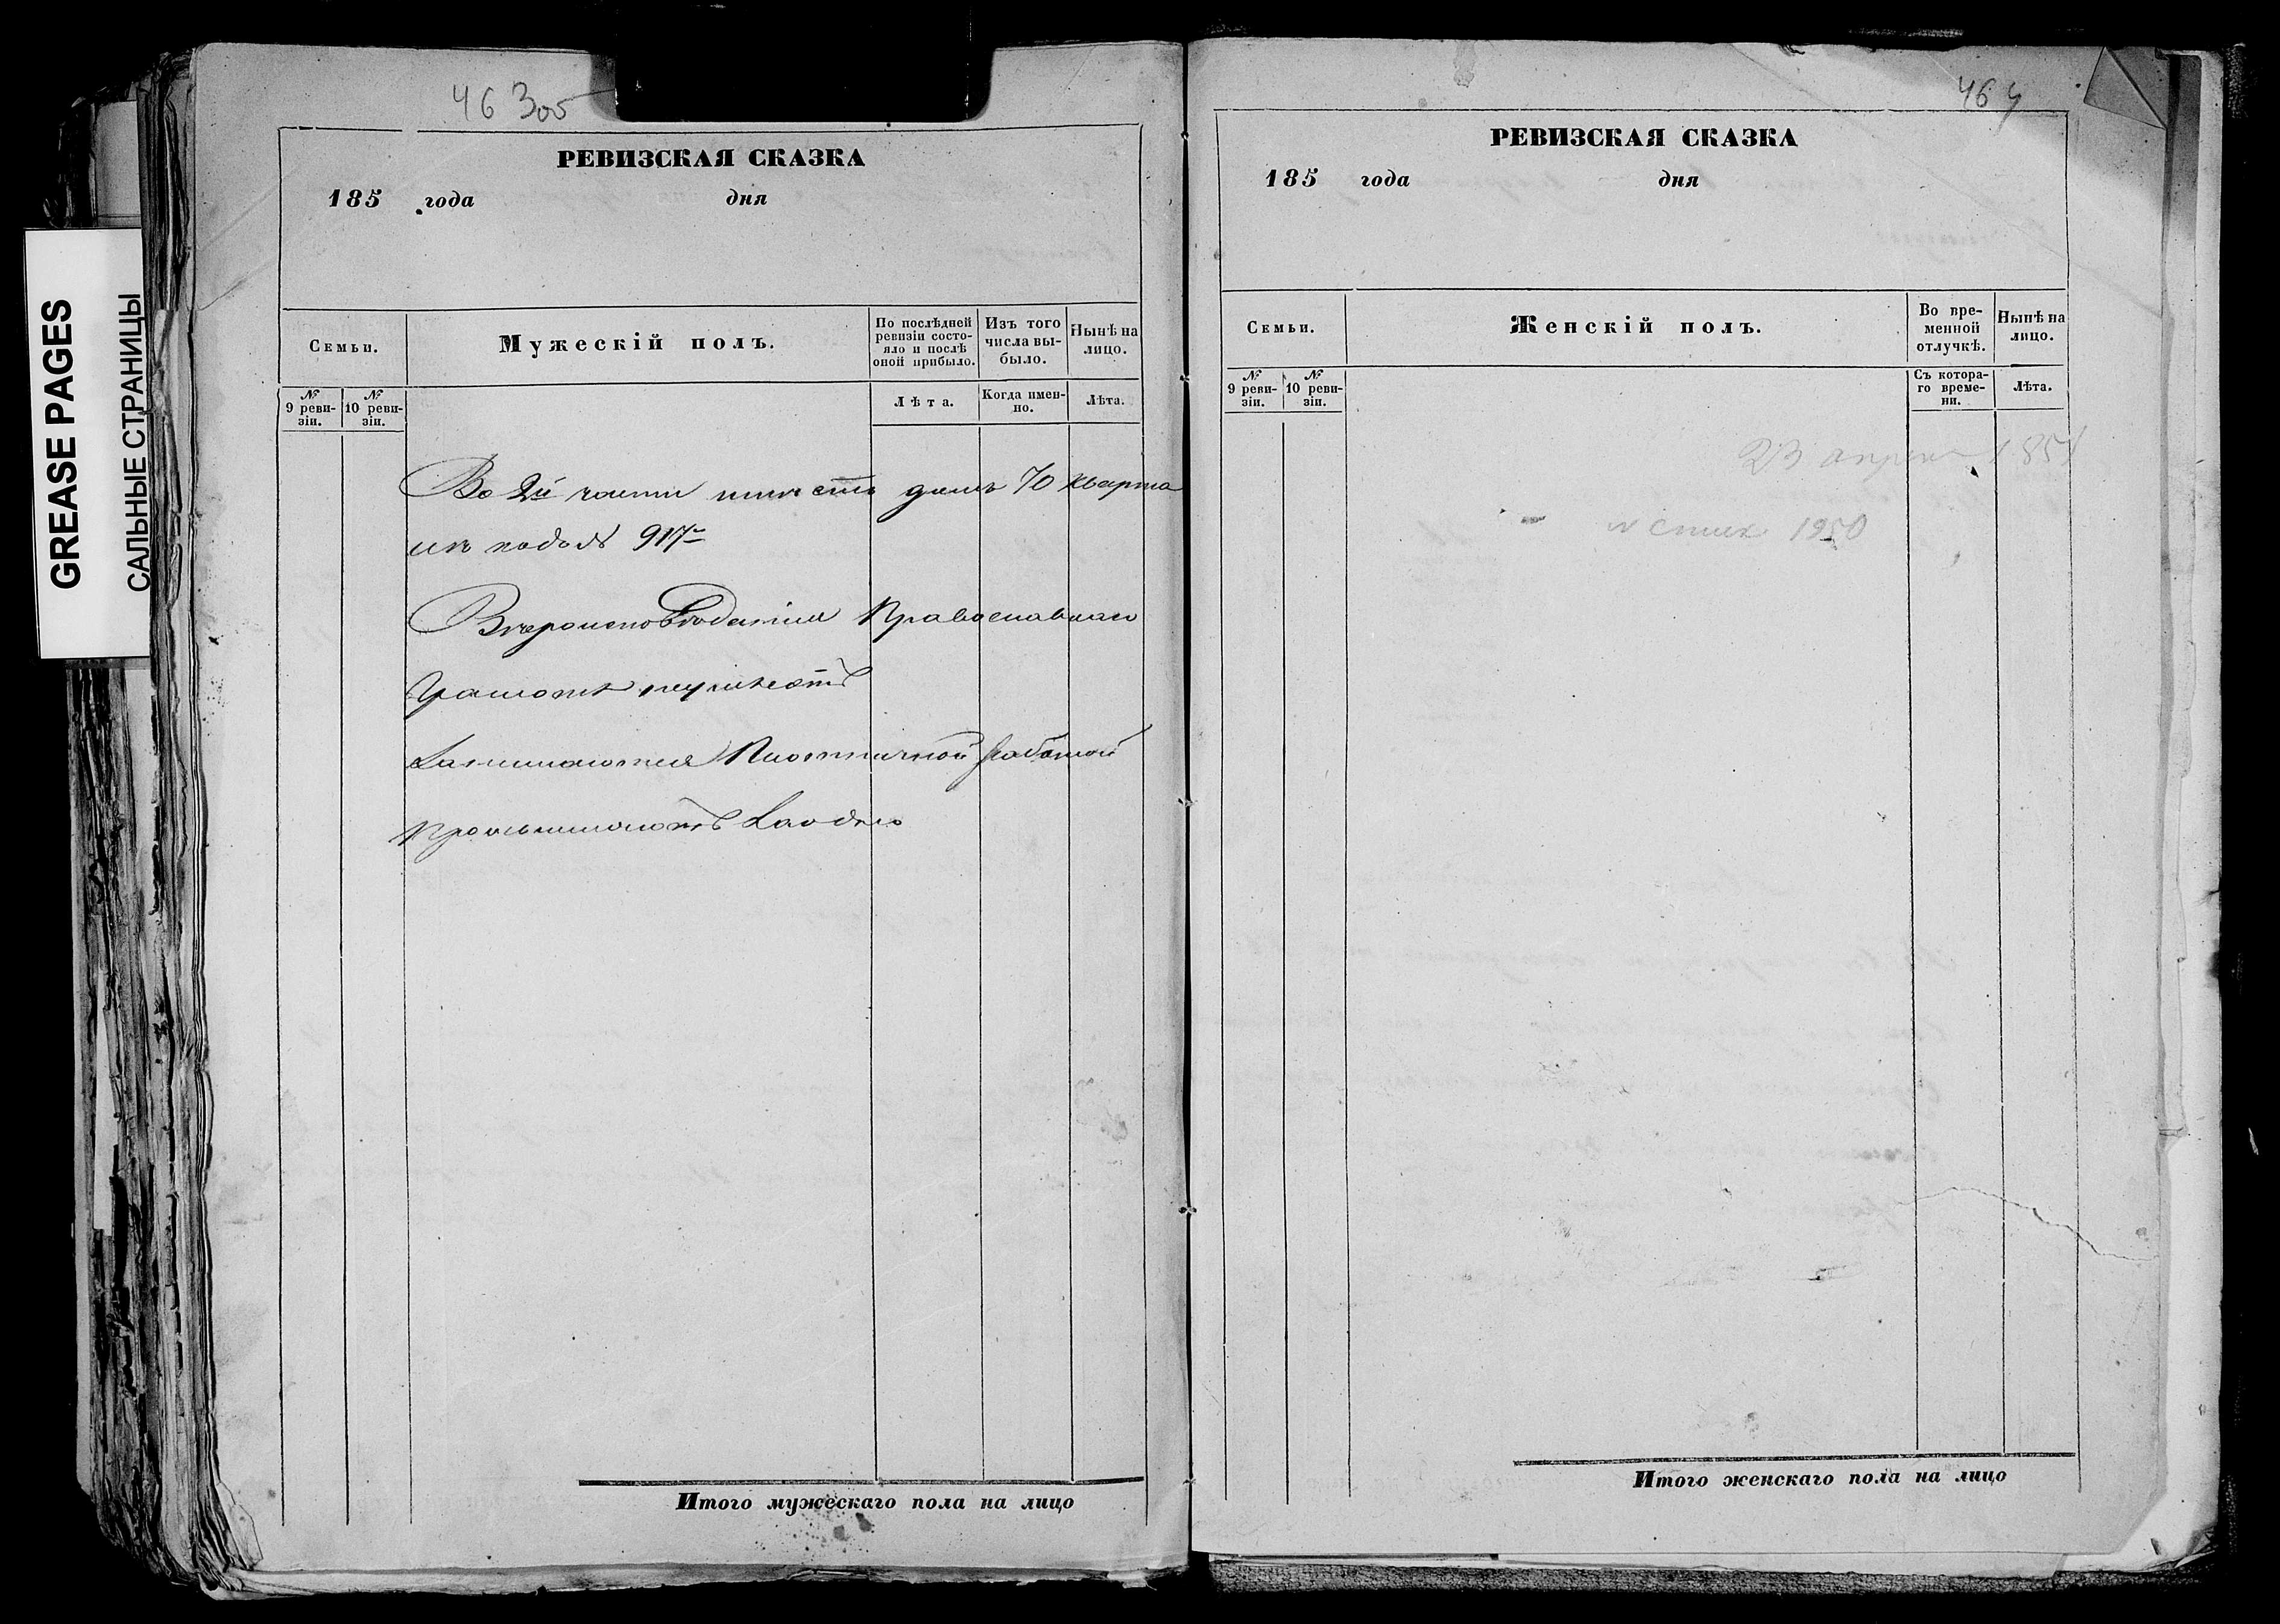 GREASE PAGES
САЛЬНЫЕ СТРАНИЦЫ
46 305
РЕВИЗСКАЯ СКАЗКА
185 года дня
Семьи.
Мужескій полъ.
По послѣдней ревизіи состояло и послѣ оной прибыло.
Изъ того числа выбыло.
Нынѣ на лицо.
№ 9 ревизіи.
№ 10 ревизіи.
Лѣта.
Когда именно.
Лѣта.
Во 2й части домъ 70 кварта
917
Вѣроисповѣданія Православнаго
Грамотѣ неумѣютъ
Занимаются Плотничной работой
Промышляютъ
Итого мужескаго пола на лицо
464
РЕВИЗСКАЯ СКАЗКА
185 года дня
Семьи.
Женскій полъ.
Во временной отлучкѣ.
Нынѣ на лицо.
№ 9 ревизіи.
№ 10 ревизіи.
Съ котораго времени.
Лѣта.
23 апреля 1851
1950
Итого женскаго пола на лицо